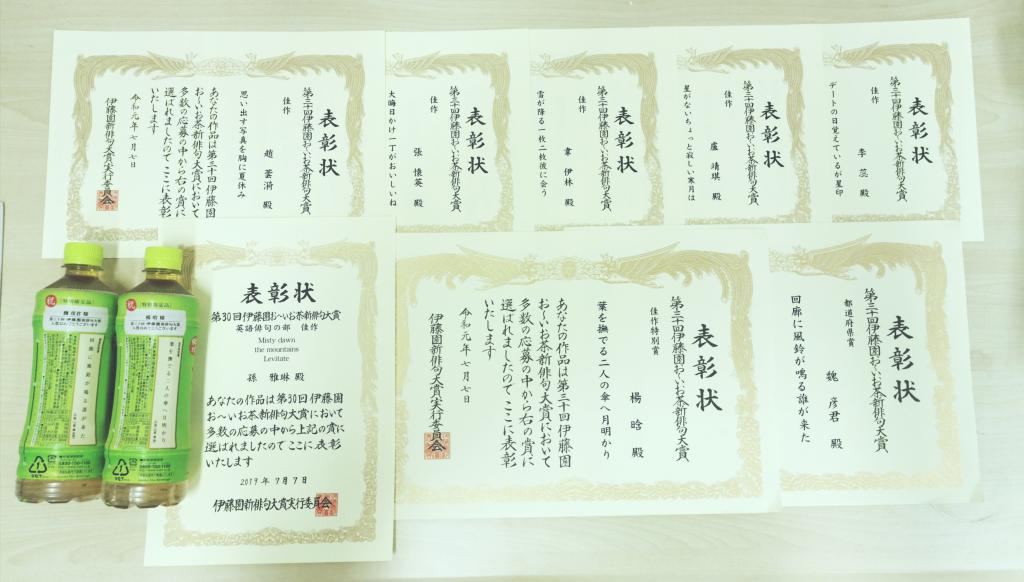 表彰状
第三十回伊藤園お〜いお茶新俳句大賞
佳作
趙 蕓渧 殿
思い出す写真を胸に夏休み
あなたの作品は第三十回伊藤園
お〜いお茶新俳句大賞において
多数の応募の中から右の賞に
選ばれましたのでここに表彰
いたします
令和元年七月七日
伊藤園新俳句大賞実行委員会
表彰状
第三十回伊藤園お〜いお茶新俳句大賞
佳作
張 懐英 殿
大晦日かけ一丁がおいしいね
表彰状
第三十回伊藤園お〜いお茶新俳句大賞
佳作
韋 伊林 殿
雪が降る一枚二枚彼に会う
表彰状
第三十回伊藤園お〜いお茶新俳句大賞
佳作
盧 靖琪 殿
星がないちょっと寂しい寒月は
表彰状
第三十回伊藤園お〜いお茶新俳句大賞
佳作
李 蕊 殿
デートの日覚えているが星印
表彰状
第30回伊藤園お〜いお茶新俳句大賞
英語俳句の部 佳作
Misty dawn
the mountains
Levitate
孫 雅琳 殿
あなたの作品は第30回伊藤園
お〜いお茶新俳句大賞において
多数の応募の中から上記の賞に
選ばれましたのでここに表彰
いたします
2019年7月7日
伊藤園新俳句大賞実行委員会
表彰状
第三十回伊藤園お〜いお茶新俳句大賞
佳作特別賞
楊 晗 殿
葉を撫でる二人の傘へ月明かり
あなたの作品は第三十回伊藤園
お〜いお茶新俳句大賞において
多数の応募の中から右の賞に
選ばれましたのでここに表彰
いたします
令和元年七月七日
伊藤園新俳句大賞実行委員会
表彰状
第三十回伊藤園お〜いお茶新俳句大賞
都道府県賞
魏 彦君 殿
回廊に風鈴が鳴る誰が来た
祝
回廊に風鈴が鳴る誰が来た
祝
葉を撫でる二人の傘へ月明かり